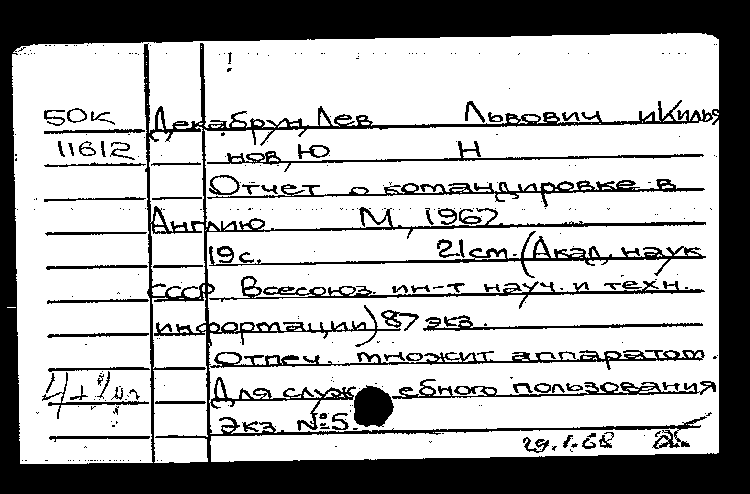 !
50К Декабрун, Лев Львович и Килья
11612 нов, Ю Н
Отчет о командировке в
Англию. М., 1967.
19с. 21 см. (Акад. наук
СССР Всесоюз. ин-т науч. и техн.
информации) 87 экз.
Отпеч. множит аппаратом.
Для служебного пользования
Экз. №5.
29.1.68